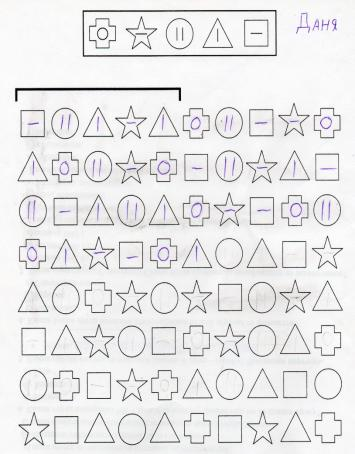 Даня